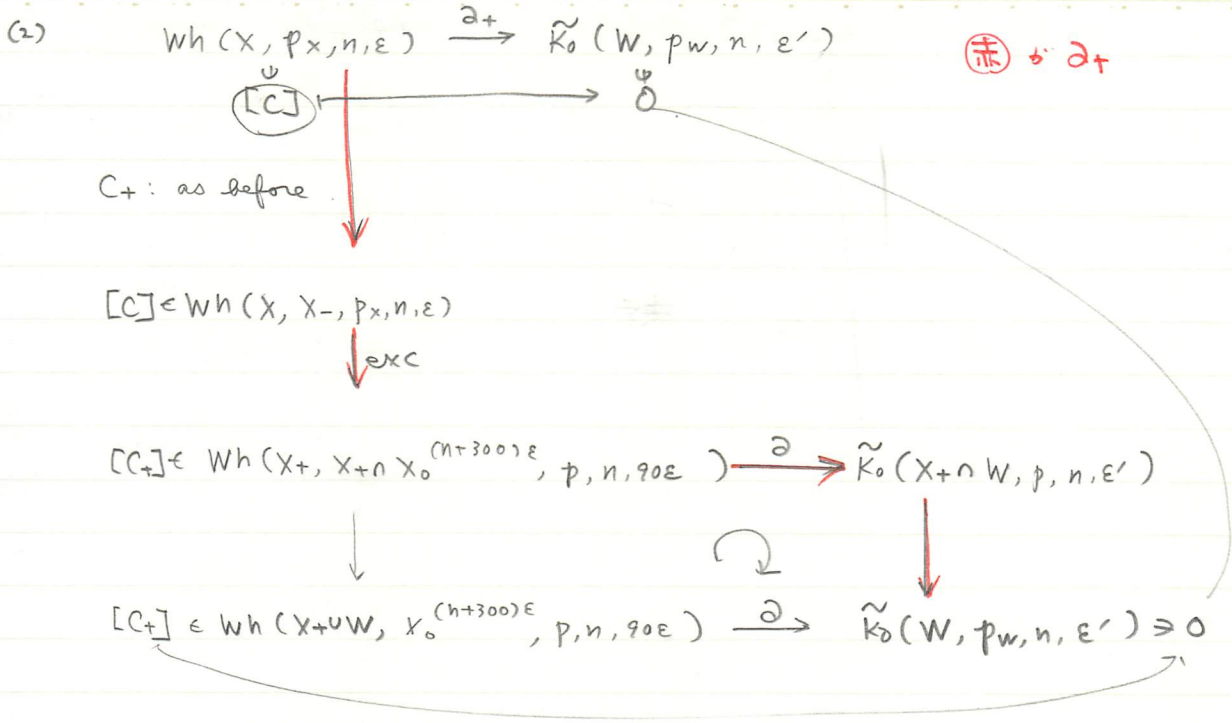 (2) Wh (X, p_X, n, ε) —∂+→ K̃₀ (W, p_W, n, ε′)
赤 が ∂+
[C] ↦ 0
C+ : as before
[C] ∈ Wh (X, X₋, p_X, n, ε)
exc
[C+] ∈ Wh (X+, X+ ∩ X₀^{(n+300)ε}, p, n, 90ε) —∂→ K̃₀ (X+ ∩ W, p, n, ε′)
[C+] ∈ Wh (X+ ∪ W, X₀^{(n+300)ε}, p, n, 90ε) —∂→ K̃₀ (W, p_W, n, ε′) ∋ 0